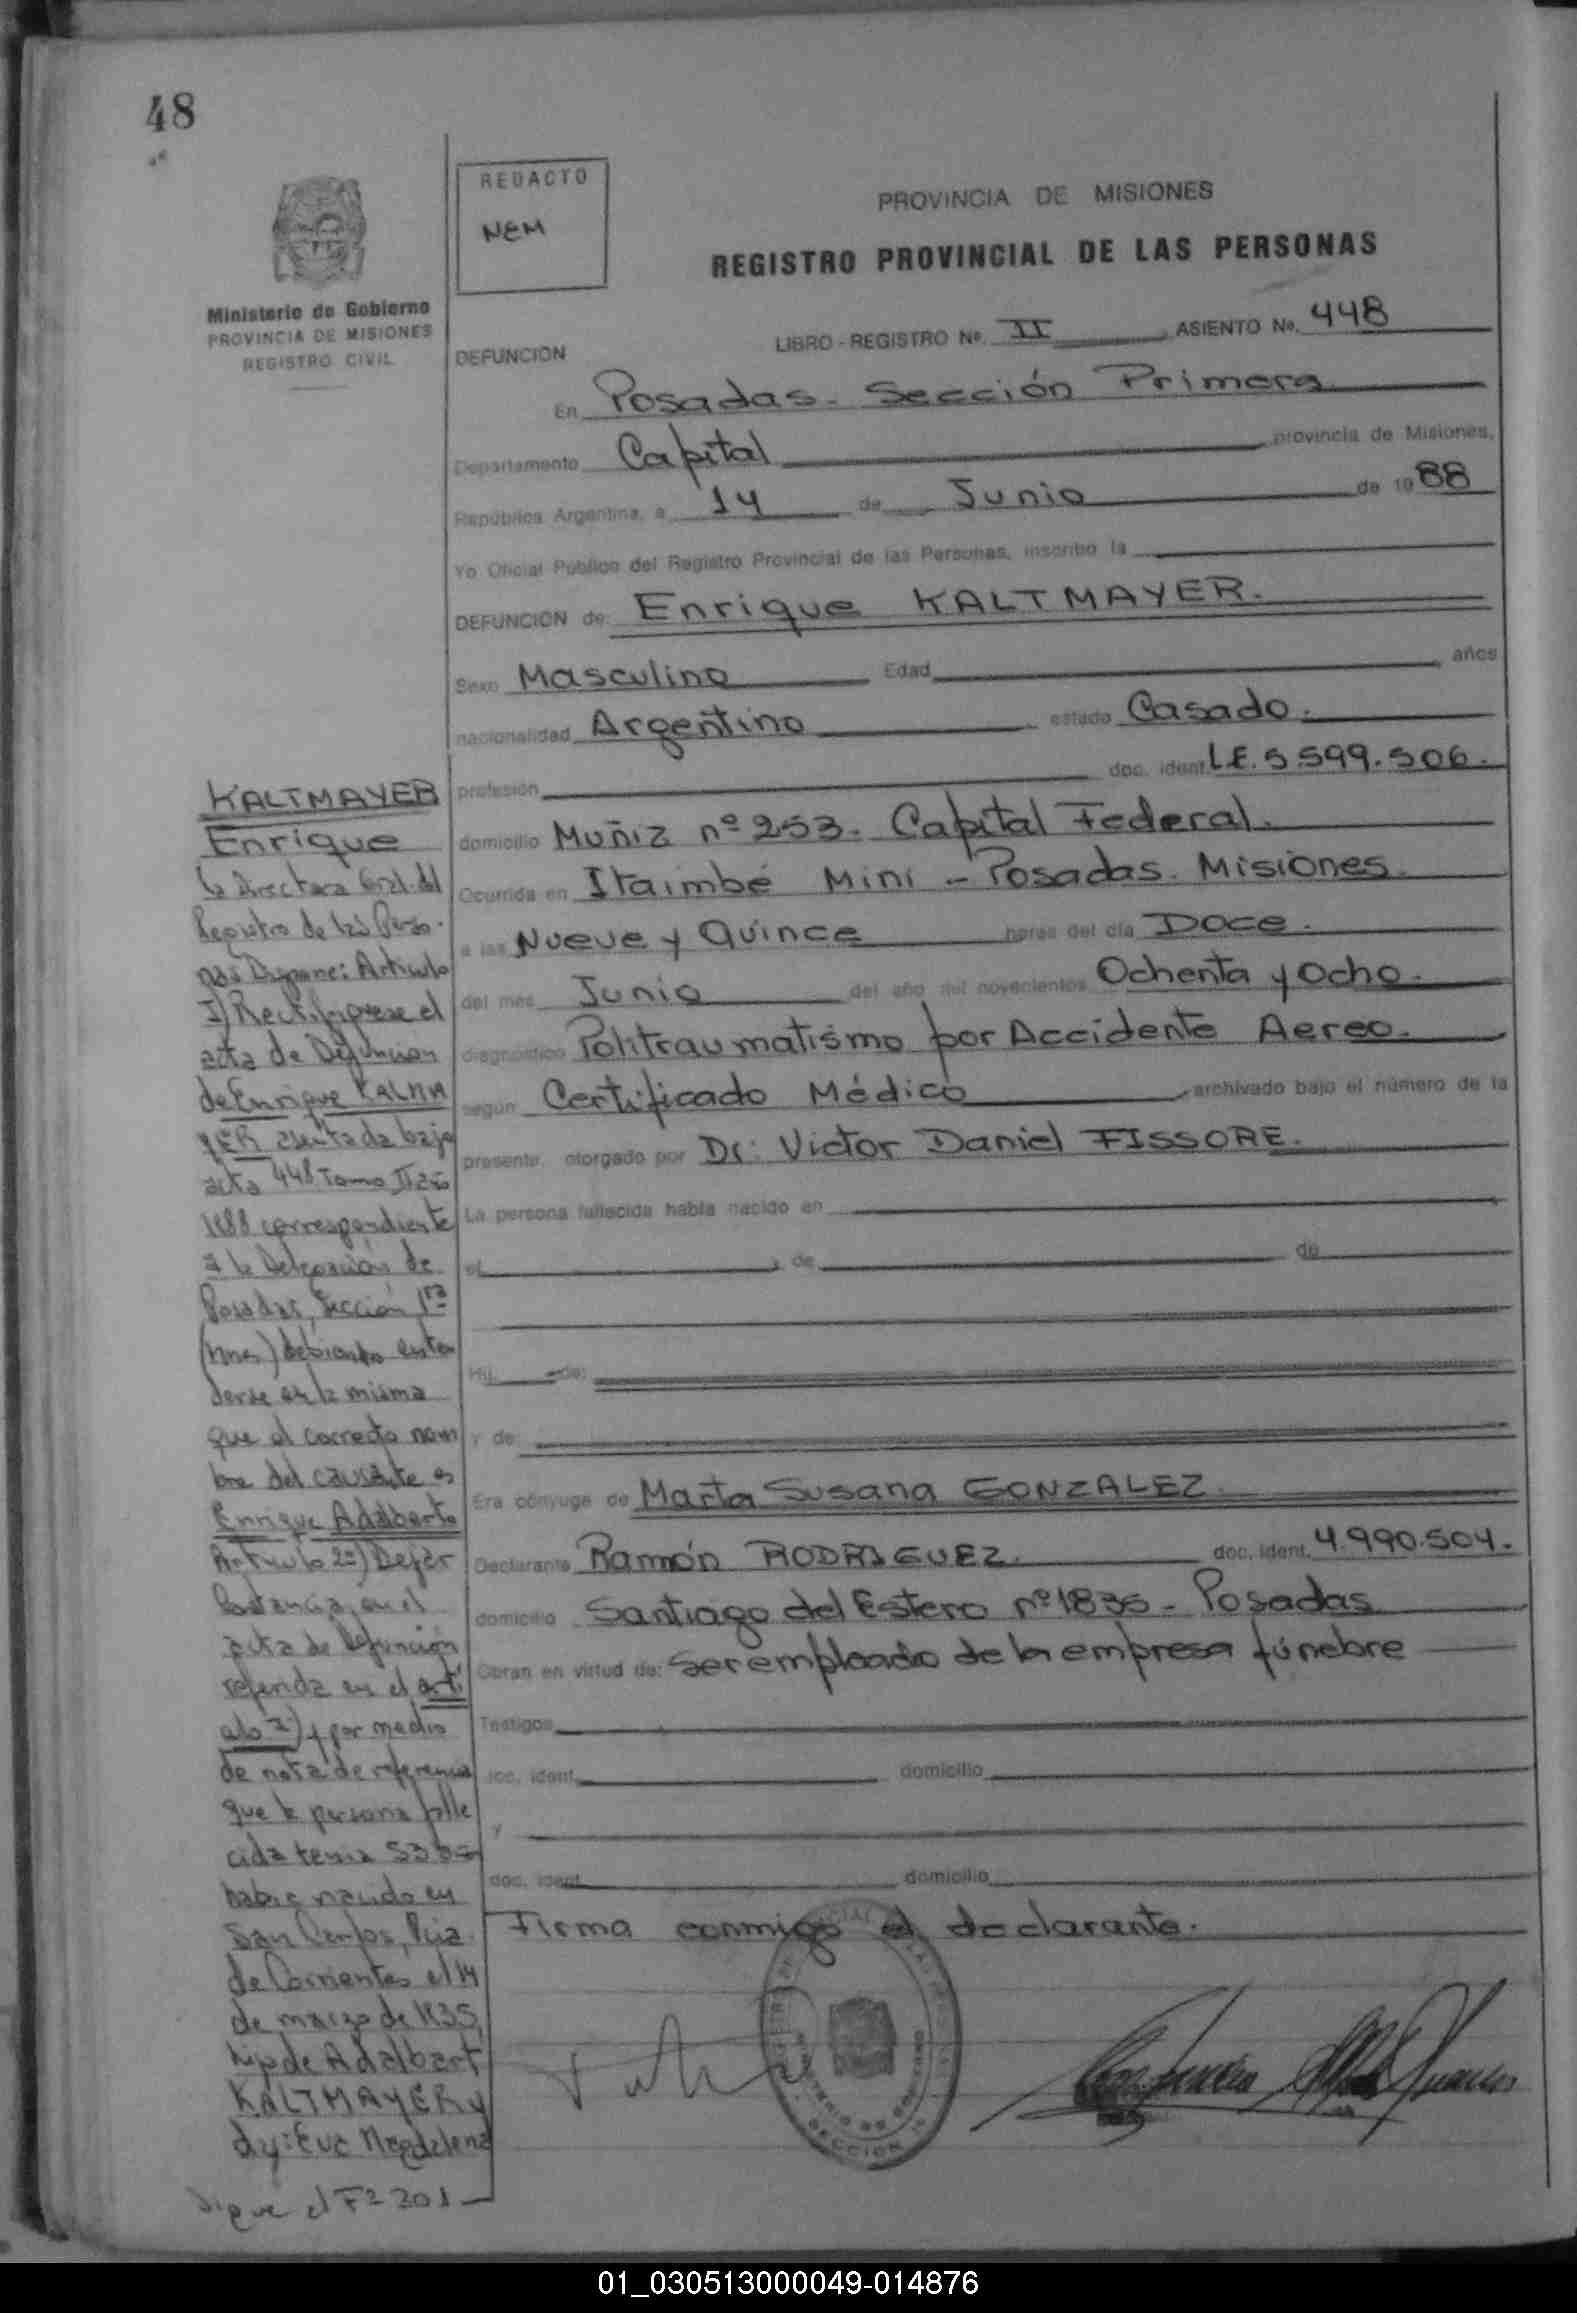 48
REDACTO
NEM
Ministerio de Gobierno
PROVINCIA DE MISIONES
REGISTRO CIVIL
PROVINCIA DE MISIONES
REGISTRO PROVINCIAL DE LAS PERSONAS
LIBRO - REGISTRO No. II ASIENTO No. 448
DEFUNCION
En Posadas - Sección Primera
Departamento Capital provincia de Misiones,
República Argentina, a 14 de Junio de 1988
Yo Oficial Público del Registro Provincial de las Personas, inscribo la
DEFUNCION de: Enrique KALTMAYER.
Sexo Masculino Edad años
nacionalidad Argentino estado Casado.
profesión doc. ident. L.E. 5.599.506.
domicilio Muñiz nº 253. Capital Federal.
Ocurrida en Itaimbé Miní - Posadas. Misiones.
a las Nueve y Quince horas del día Doce.
del mes Junio del año mil novecientos Ochenta y Ocho.
diagnóstico Politraumatismo por Accidente Aereo.
según Certificado Médico archivado bajo el número de la
presente, otorgado por Dr: Victor Daniel FISSORE.
La persona fallecida había nacido en
el de de
Hij de:
y de
Era cónyuge de Marta Susana GONZALEZ
Declarante Ramón RODRIGUEZ. doc. ident. 4.990.504.
domicilio Santiago del Estero nº 1835 - Posadas
Obran en virtud de: Ser empleado de la empresa fúnebre
Testigos
doc. ident. domicilio
y
doc. ident. domicilio
Firma conmigo el declarante.
KALTMAYER
Enrique
La Directora Gral. del
Registro de las Perso-
nas Dispone: Artículo
1) Rectifíquese el
acta de Defunción
de Enrique KALMA
YER asentada bajo
acta 448 Tomo II año
1988 correspondiente
a la Delegación de
Posadas, Sección 1ra
(Mnes) debiendo enten
derse en la misma
que el correcto nom
bre del causante es
Enrique Adalberto
Artículo 2º) Dejar
Constancia, en el
acta de defunción
referida en el artí
culo y por medio
de nota de referencia
que la persona falle
cida tenia 53
habia nacido en
San Carlos, Pcia.
de Corrientes el 14
de marzo de 1935,
hijo de Adalbert
KALTMAYER y
dy: Eva Magdalena
Sigue el Fº 201
MINISTERIO DE GOBIERNO
SECCION
01_030513000049-014876